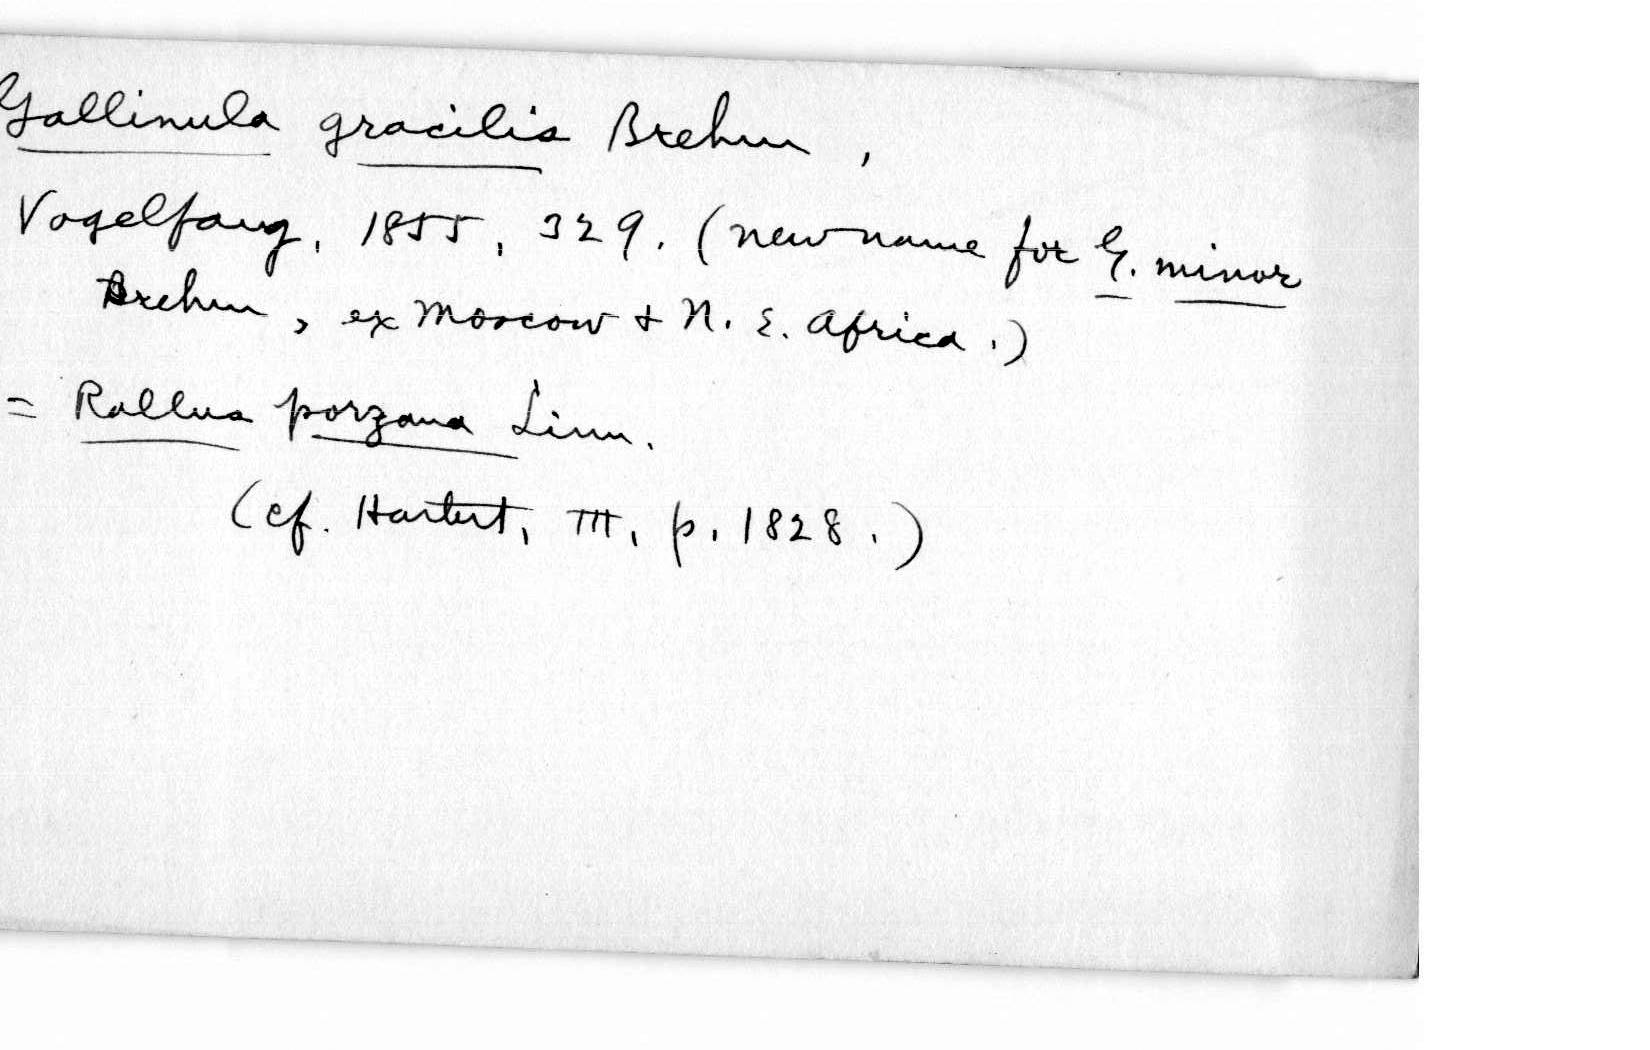 Gallinula gracilis Brehm,
Vogelfang, 1855, 329. (new name for G. minor
Brehm, ex Moscow + N. E. Africa.)
= Rallus porzana Linn.
(cf. Hartert, III, p. 1828.)